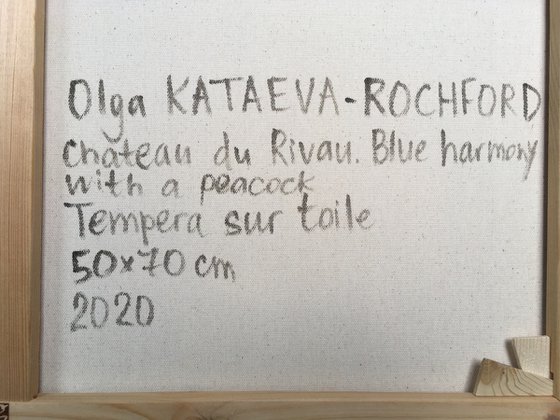 Olga KATAEVA-ROCHFORD
chateau du Rivau. Blue harmony
with a peacock
Tempera sur toile
50x70 cm
2020